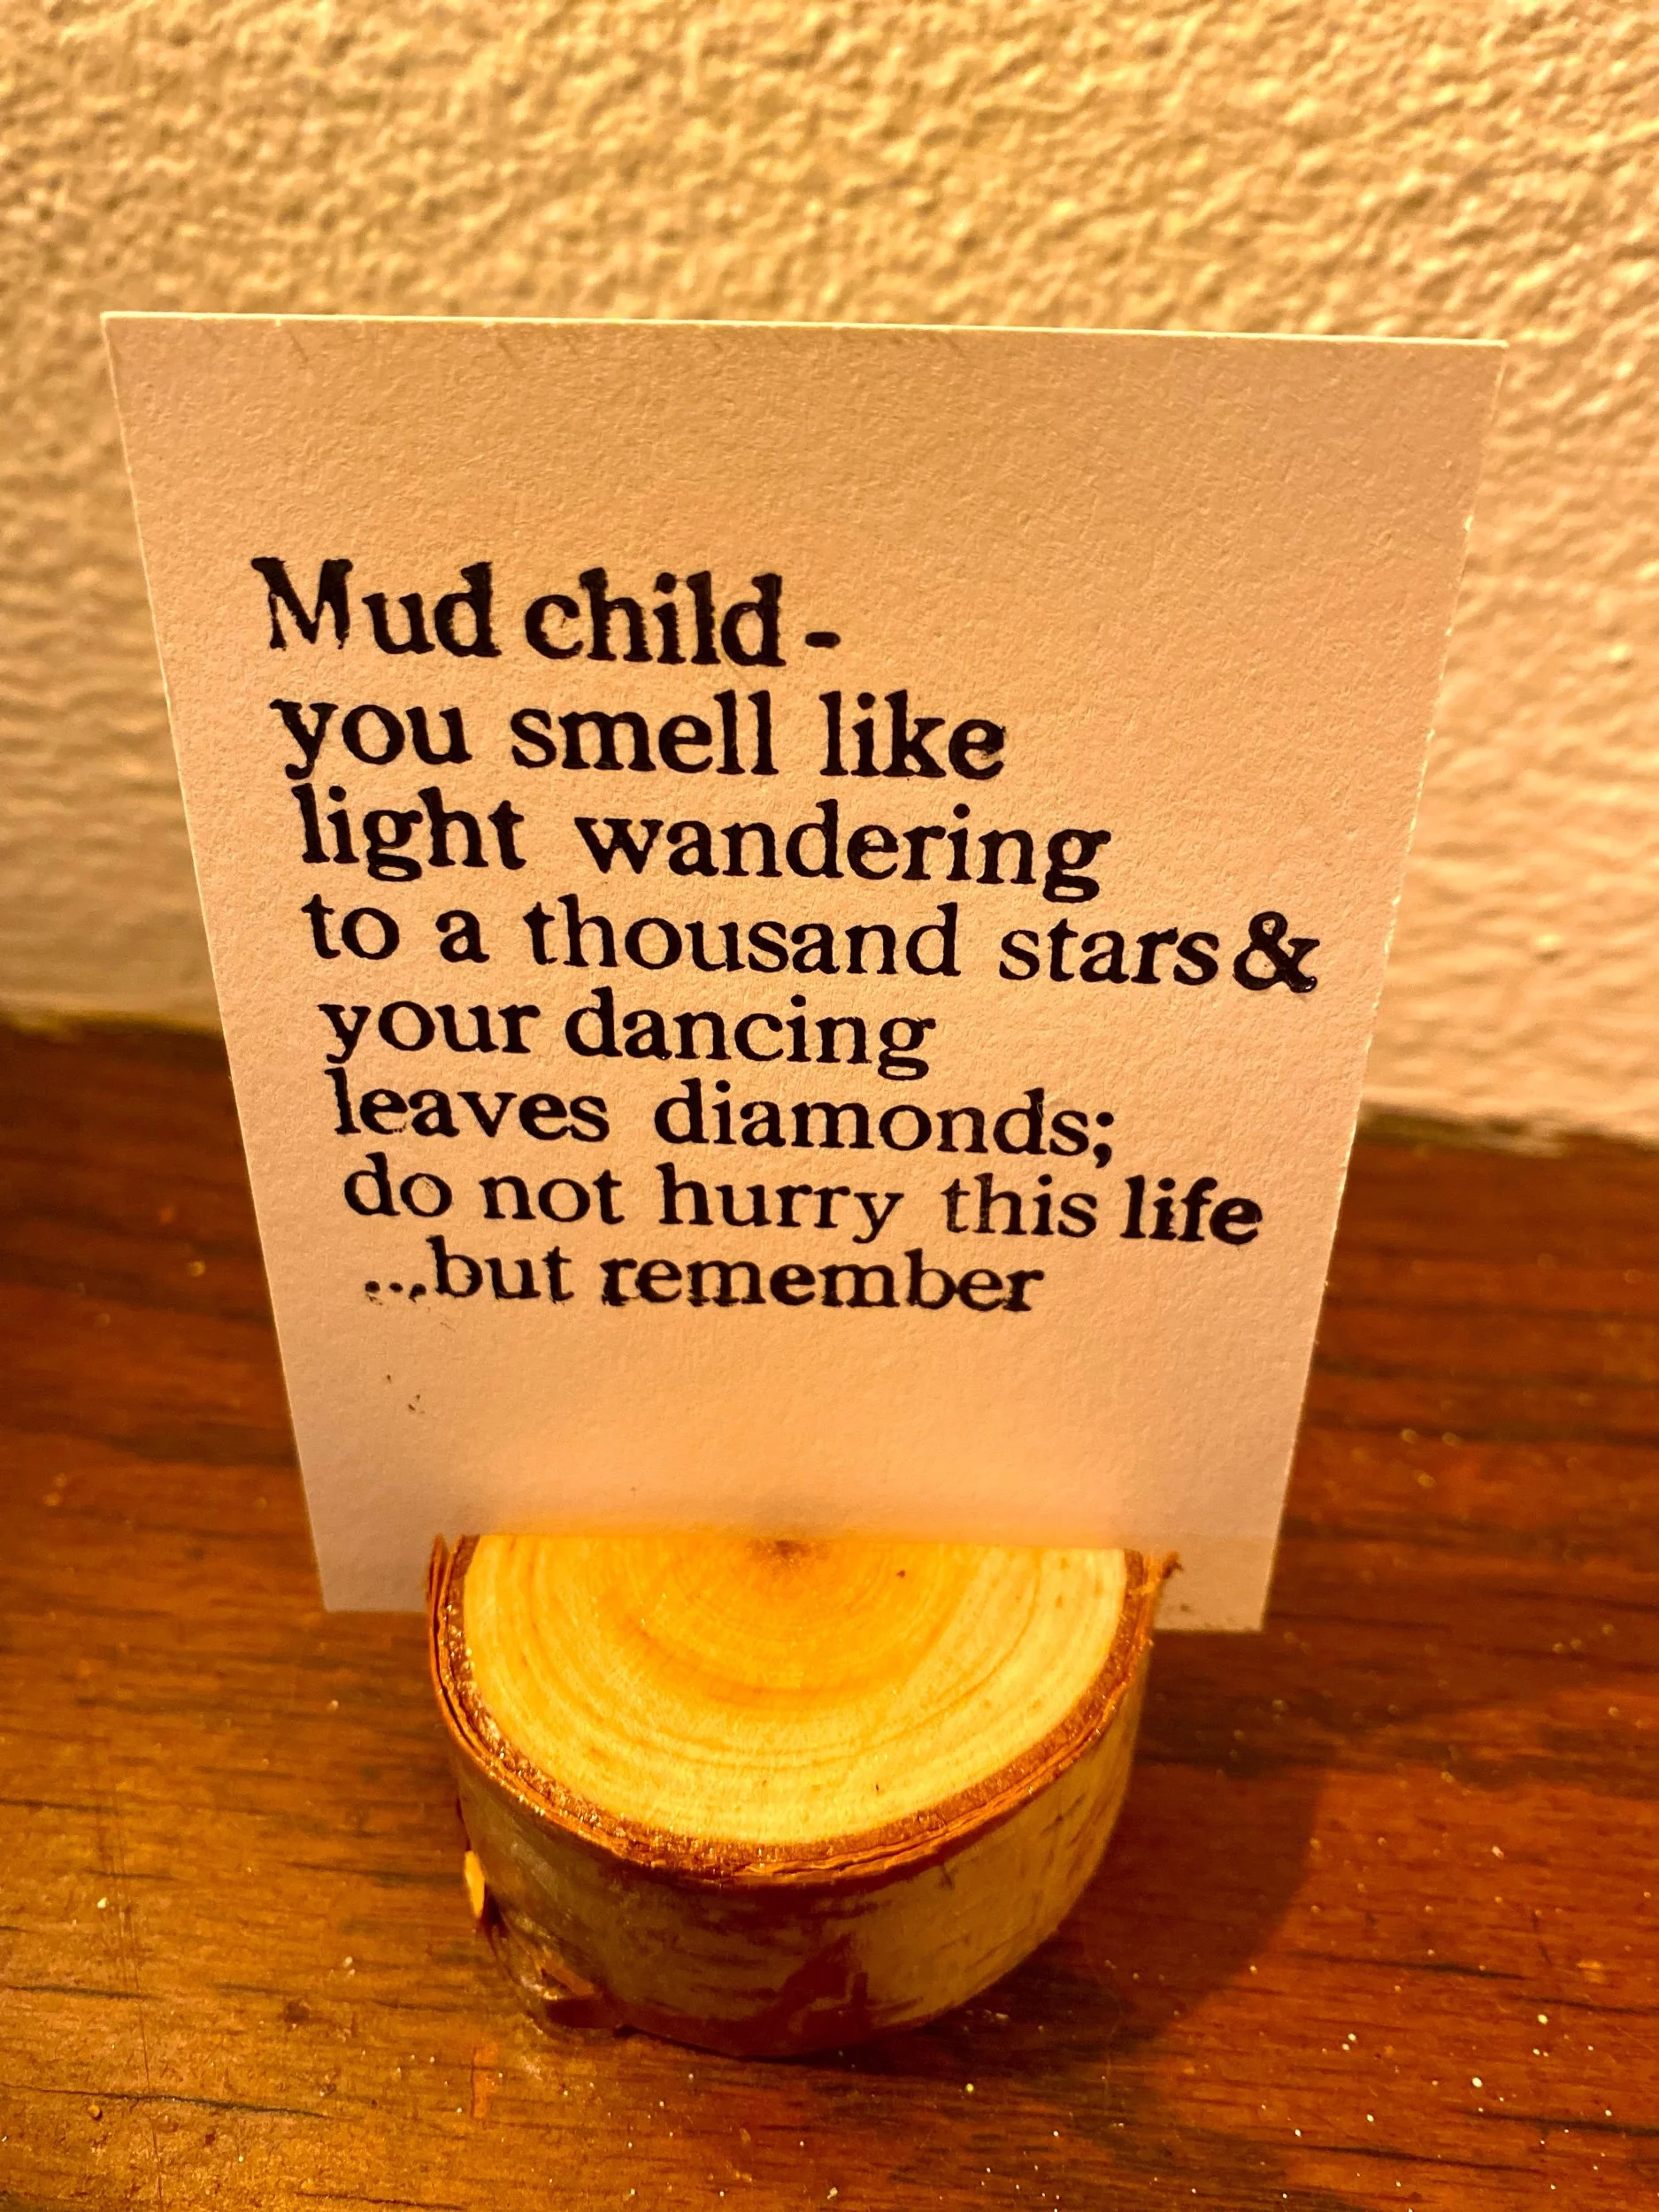 Mud child -
you smell like
light wandering
to a thousand stars &
your dancing
leaves diamonds;
do not hurry this life
...but remember